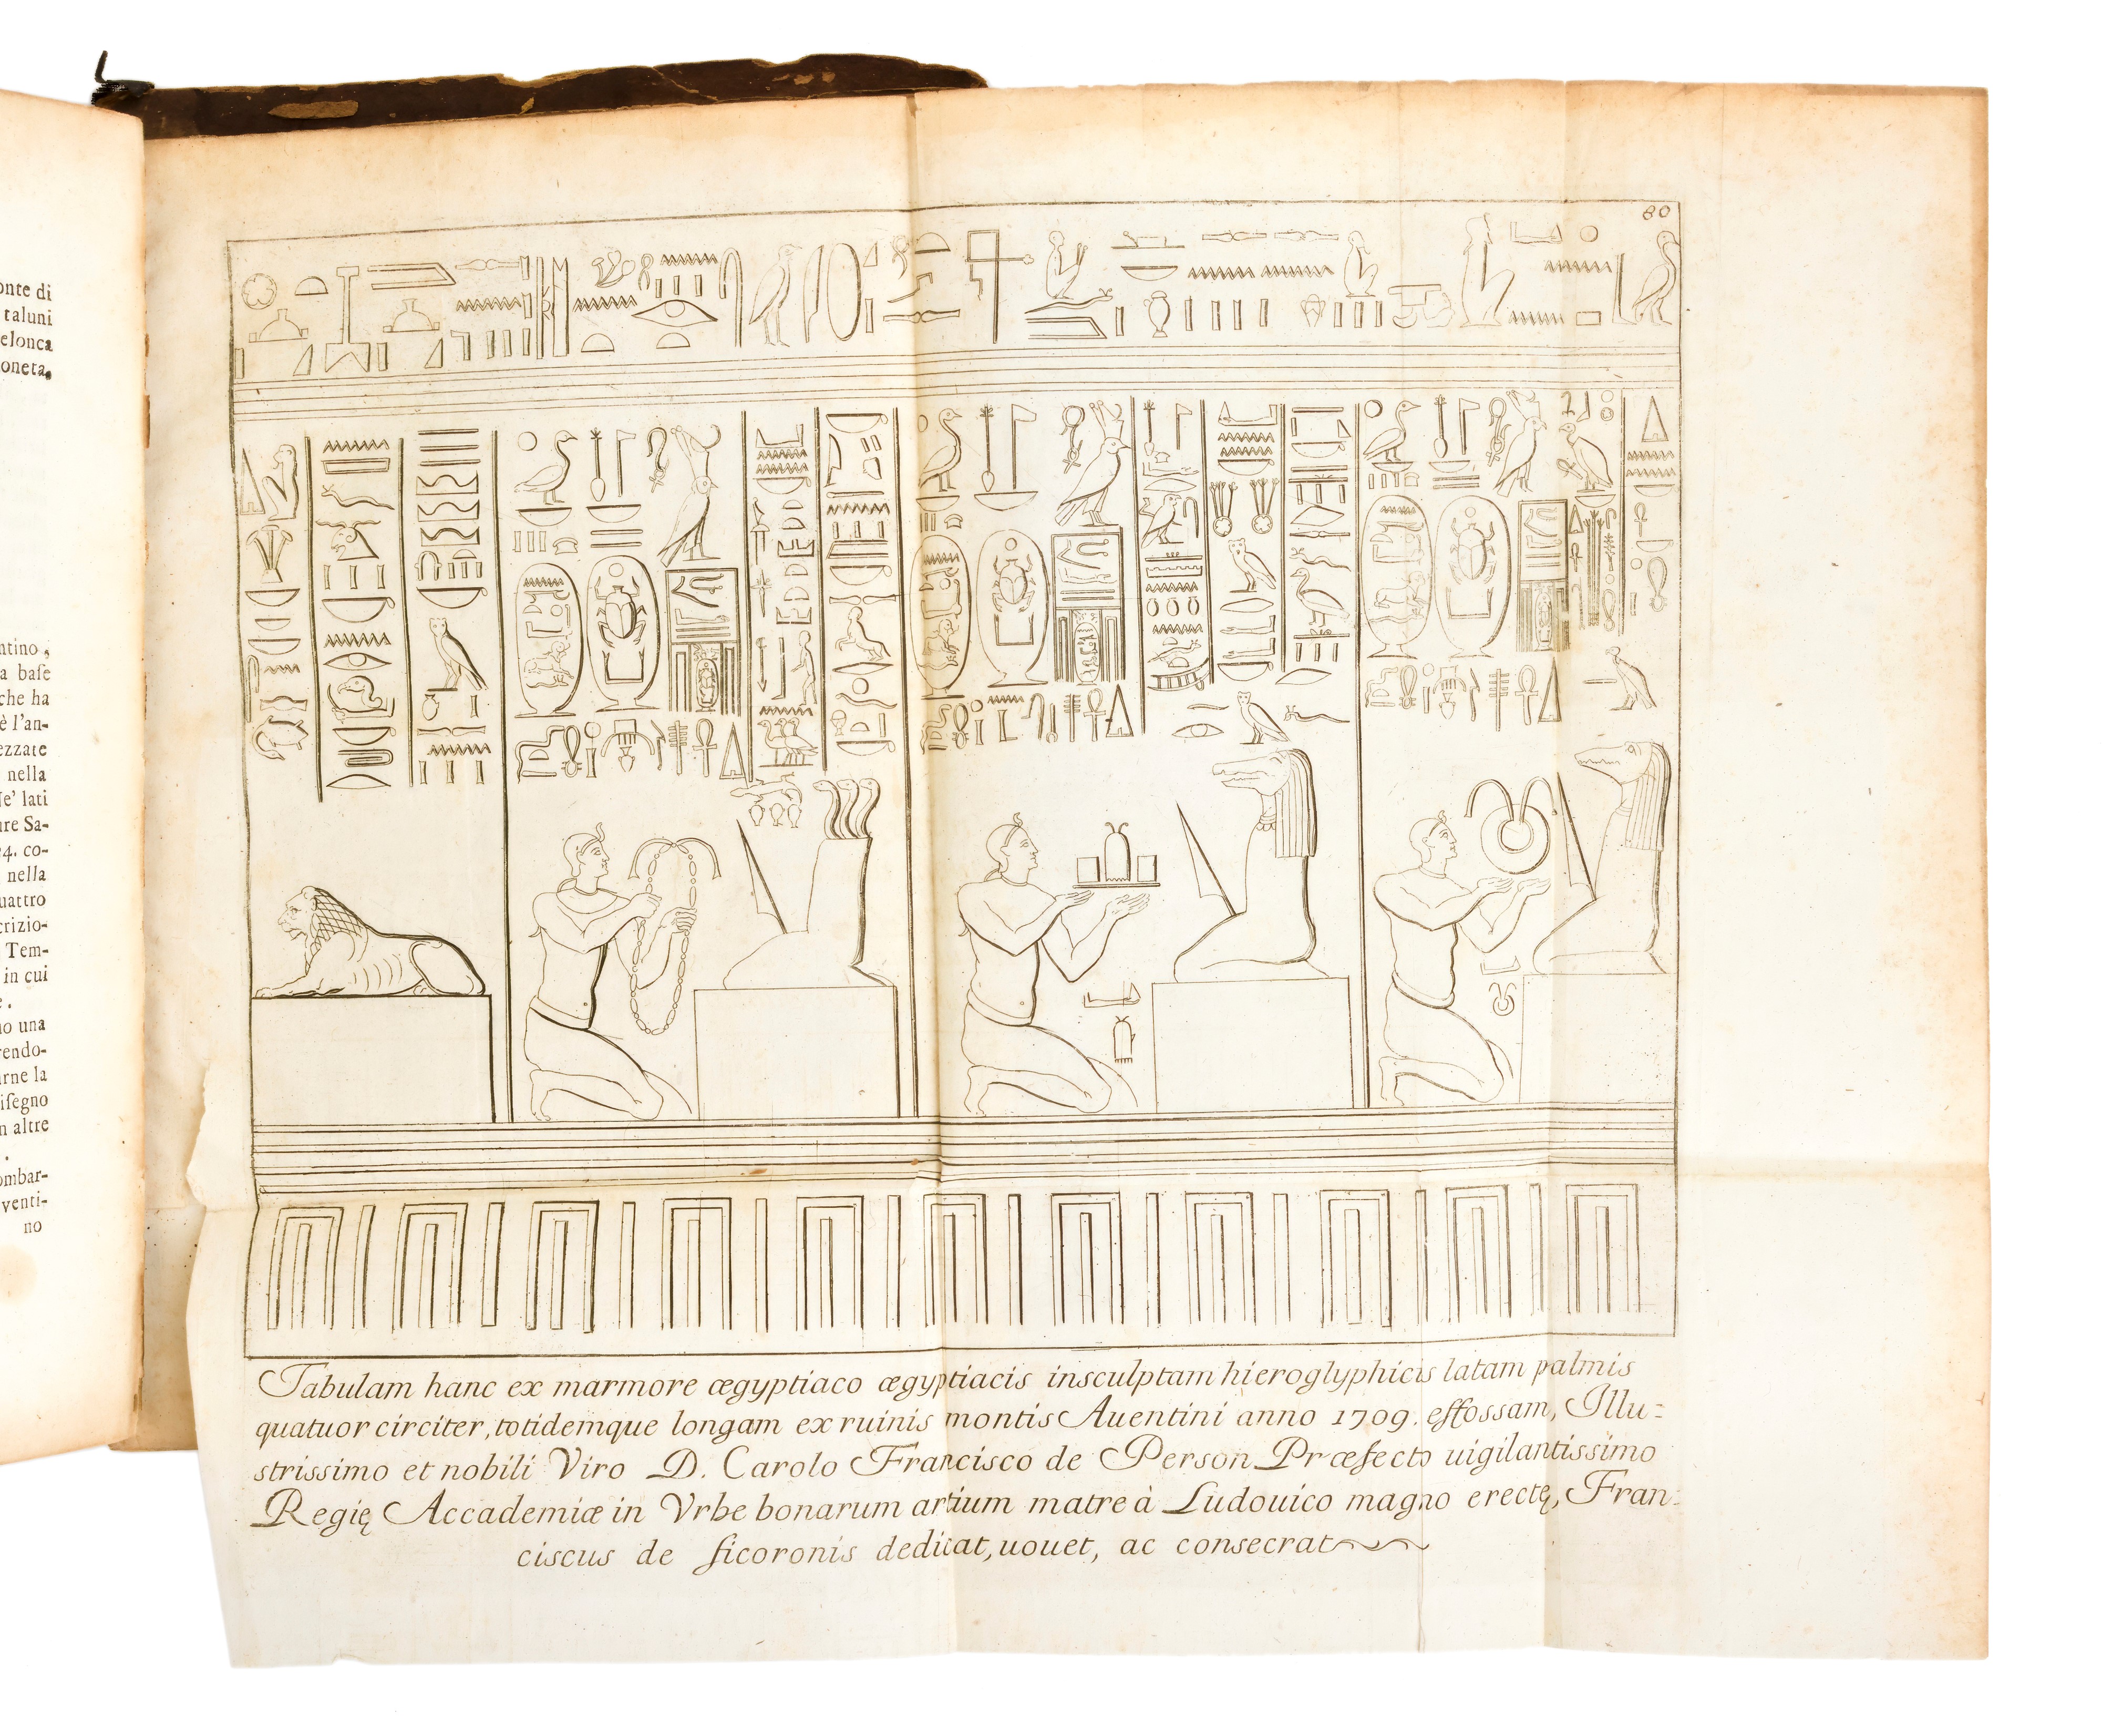 onte di
taluni
elonca
oneta.
ntino,
a baſe
che ha
è l'an-
ezzate
nella
Ne' lati
are Sa-
4. co-
nella
uattro
crizio-
Tem-
in cui
e.
no una
rendo-
arne la
iſegno
n altre
.
ombar-
venti-
no
80
Tabulam hanc ex marmore ægyptiaco ægyptiacis insculptam hieroglyphicis latam palmis
quatuor circiter, totidemque longam ex ruinis montis Auentini anno 1709. effossam, Illu=
strissimo et nobili Viro D. Carolo Francisco de Person Præfecto uigilantissimo
Regię Accademiæ in Vrbe bonarum artium matre à Ludouico magno erectę, Fran=
ciscus de ficoronis dedicat, uouet, ac consecrat